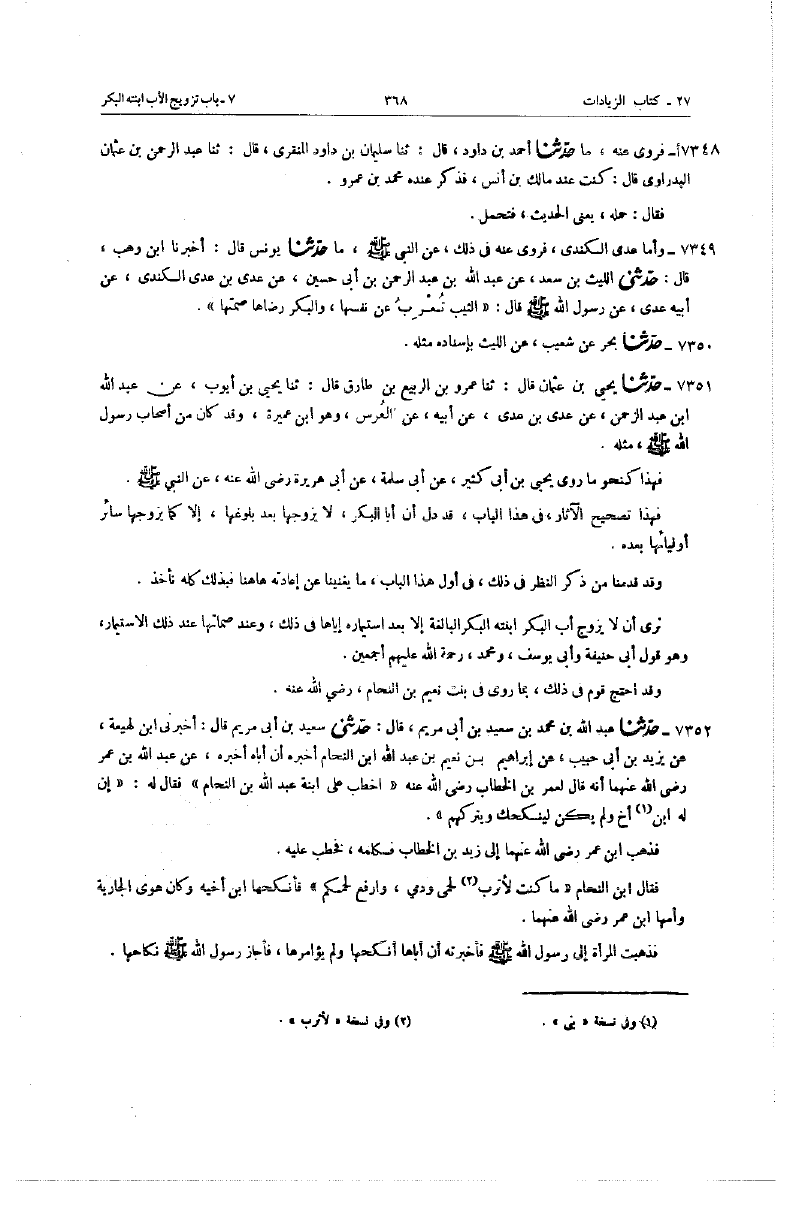 ٢٧ - كتاب الزيادات ٣٦٨ ٧ - باب تزويج الأب ابنته البكر
٧٣٤٨أ- فروى عنه ، ما حدثنا أحمد بن داود ، قال : ثنا سليمان بن داود المنقرى ، قال : ثنا عبد الرحمن بن عثمان
البدراوى قال : كنت عند مالك بن أنس ، فذكر عنده محمد بن عمرو .
فقال : حمله ، يعنى الحديث ، فتحمل .
٧٣٤٩ - وأما عدى الكندى ، فروى عنه فى ذلك ، عن النبي ﷺ ، ما حدثنا يونس قال : أخبرنا ابن وهب ،
قال : حدثنى الليث بن سعد ، عن عبد الله بن عبد الرحمن بن أبى حسين ، عن عدى بن عدى الكندى ، عن
أبيه عدى ، عن رسول الله ﷺ قال : « الثيب تُعْرِبُ عن نفسها ، والبكر رضاها صمتها » .
٧٣٥٠ - حدثنا بحر عن شعيب ، عن الليث بإسناده مثله .
٧٣٥١ - حدثنا يحيى بن عثمان قال : ثنا عمرو بن الربيع بن طارق قال : ثنا يحيى بن أيوب ، عن عبد الله
ابن عبد الرحمن ، عن عدى بن عدى ، عن أبيه ، عن العُرس ، وهو ابن عميرة ، وقد كان من أصحاب رسول
الله ﷺ ، مثله .
فهذا كنحو ما روى يحيى بن أبى كثير ، عن أبى سلمة ، عن أبى هريرة رضى الله عنه ، عن النبي ﷺ .
فهذا تصحيح الآثار ، فى هذا الباب ، قد دل أن أبا البكر ، لا يزوجها بعد بلوغها ، إلا كما يزوجها سائر
أوليائها بعده .
وقد قدمنا من ذكر النظر فى ذلك ، فى أول هذا الباب ، ما يغنينا عن إعادته هاهنا فبذلك كله نأخذ .
نرى أن لا يزوج أب البكر ابنته البكر البالغة إلا بعد استيماره إياها فى ذلك ، وعند صماتها عند ذلك الاستيمار ،
وهو قول أبى حنيفة وأبى يوسف ، ومحمد ، رحمة الله عليهم أجمعين .
وقد احتج قوم فى ذلك ، بما روى فى بنت نعيم بن النحام ، رضي الله عنه .
٧٣٥٢ - حدثنا عبد الله بن محمد بن سعيد بن أبى مريم ، قال : حدثنى سعيد بن أبى مريم قال : أخبرنى ابن لهيعة ،
عن يزيد بن أبى حبيب ، عن إبراهيم بن نعيم بن عبد الله ابن النحام أخبره أن أباه أخبره ، عن عبد الله بن عمر
رضى الله عنهما أنه قال لعمر بن الخطاب رضى الله عنه « اخطب على ابنة عبد الله بن النحام » فقال له : « إن
له ابن(١) أخ ولم يكن لينكحك ويتركهم » .
فذهب ابن عمر رضى الله عنهما إلى زيد بن الخطاب فكلمه ، فخطب عليه .
فقال ابن النحام « ما كنت لأترب(٢) لحمى ودمي ، وارفع لحمكم » فأنكحها ابن أخيه وكان هوى الجارية
وأمها ابن عمر رضى الله عنهما .
فذهبت المرأة إلى رسول الله ﷺ فأخبرته أن أباها أنكحها ولم يؤامرها ، فأجاز رسول الله ﷺ نكاحها .
(١) وفى نسخة « بنى » . (٢) وفى نسخة « لأترب » .